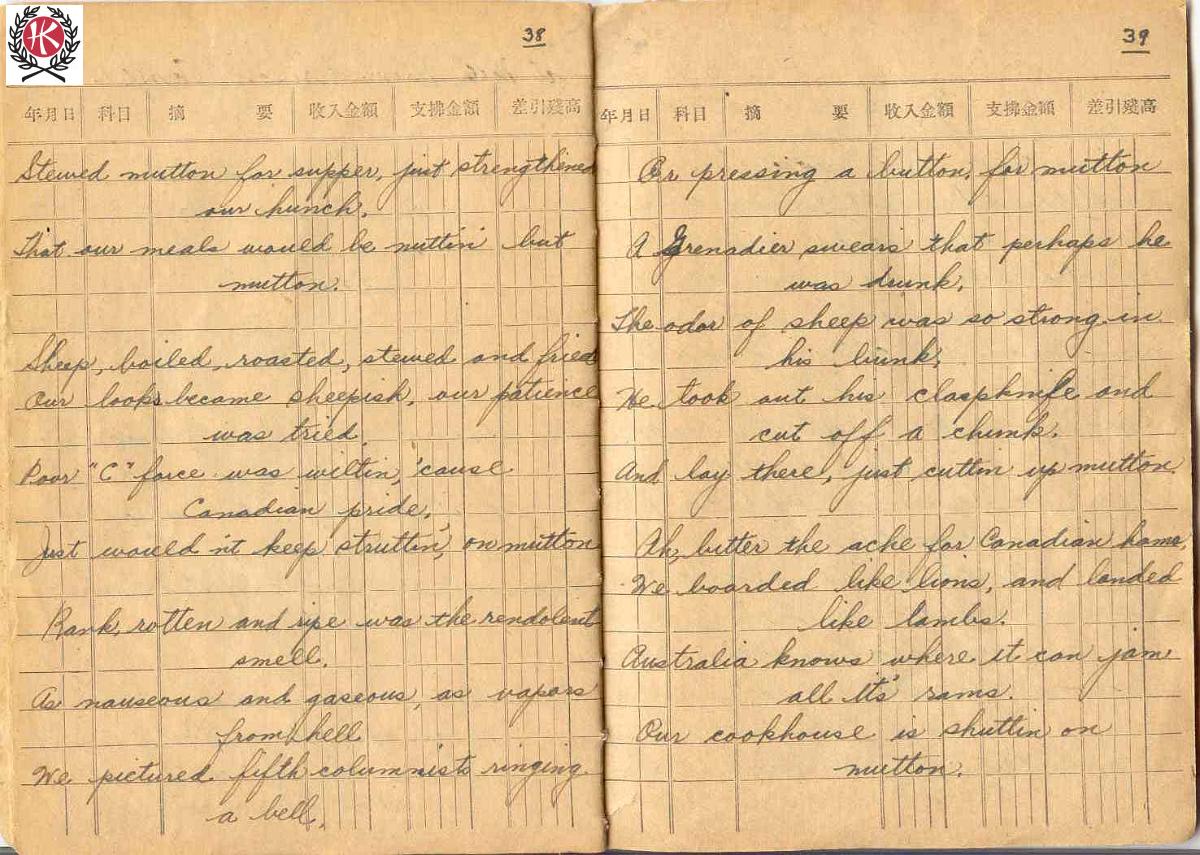 HK
38
年月日 科目 摘要 收入金額 支拂金額 差引殘高
Stewed mutton for supper, just strengthened
our hunch.
That our meals would be nuttin' but
mutton.
Sheep, boiled, roasted, stewed and fried
Our looks became sheepish, our patience
was tried.
Poor "C" force was wiltin, 'cause
Canadian pride,
Just would n't keep struttin', on mutton
Rank, rotten and ripe was the rendolent
smell.
As nauseous and gaseous, as vapors
from hell
We pictured fifth columnists ringing
a bell,
39
年月日 科目 摘要 收入金額 支拂金額 差引殘高
Or pressing a button, for mutton
A Grenadier swears that perhaps he
was drunk,
The odor of sheep was so strong in
his bunk,
He took out his claspknife and
cut off a chunk.
And lay there, just cuttin up mutton.
Ah, bitter the ache for Canadian hams,
We boarded like lions, and landed
like lambs.
Australia knows where it can jam
all it's rams.
Our cookhouse is shuttin on
mutton.